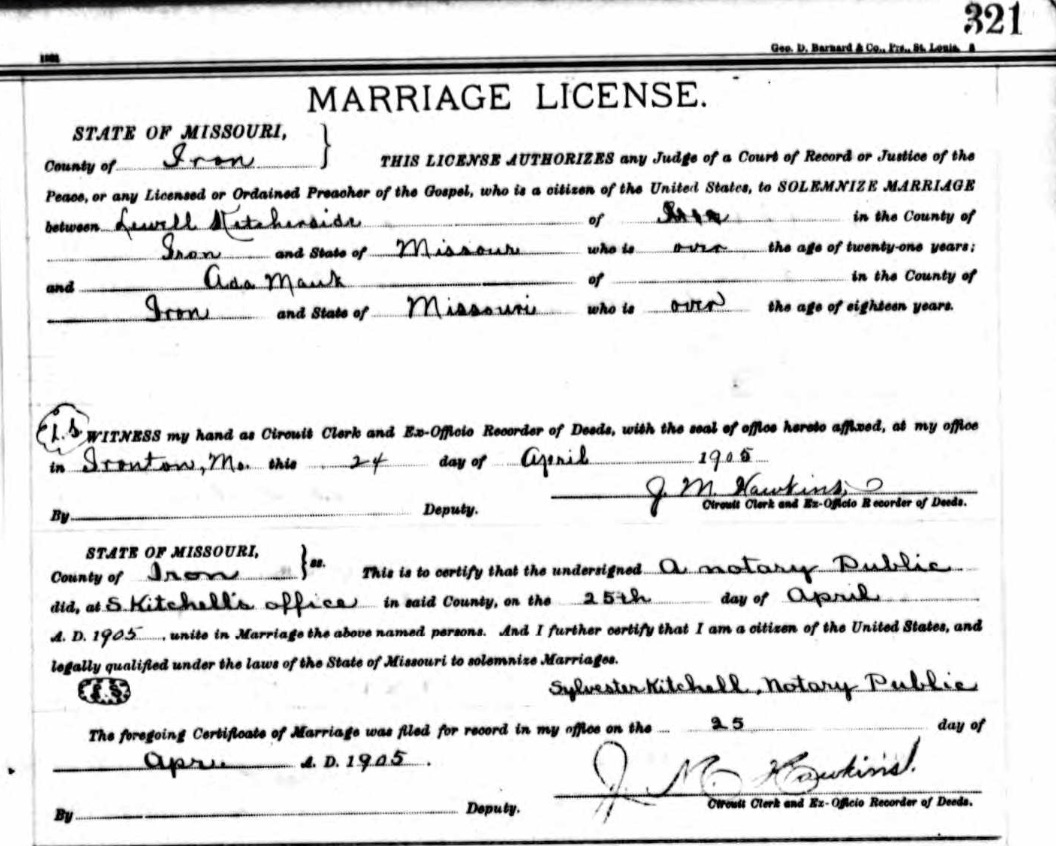 321
Geo. D. Barnard & Co., Prs., St. Louis.
MARRIAGE LICENSE.
STATE OF MISSOURI,
County of Iron } THIS LICENSE AUTHORIZES any Judge of a Court of Record or Justice of the
Peace, or any Licensed or Ordained Preacher of the Gospel, who is a citizen of the United States, to SOLEMNIZE MARRIAGE
between Lewell Kitcherside of in the County of
Iron and State of Missouri who is over the age of twenty-one years;
and Ada Mauk of in the County of
Iron and State of Missouri who is over the age of eighteen years.
L.S WITNESS my hand as Circuit Clerk and Ex-Officio Recorder of Deeds, with the seal of office hereto affixed, at my office
in Ironton, Mo. this 24 day of April 1905
J. M. Hawkins,
By Deputy. Circuit Clerk and Ex-Officio Recorder of Deeds.
STATE OF MISSOURI,
County of Iron } ss. This is to certify that the undersigned A notary Public
did, at S. Kitchell's office in said County, on the 25th day of April
A. D. 1905, unite in Marriage the above named persons. And I further certify that I am a citizen of the United States, and
legally qualified under the laws of the State of Missouri to solemnize Marriages.
L.S Sylvester Kitchell, Notary Public
The foregoing Certificate of Marriage was filed for record in my office on the 25 day of
April A. D. 1905.
J. M. Hawkins.
By Deputy. Circuit Clerk and Ex-Officio Recorder of Deeds.